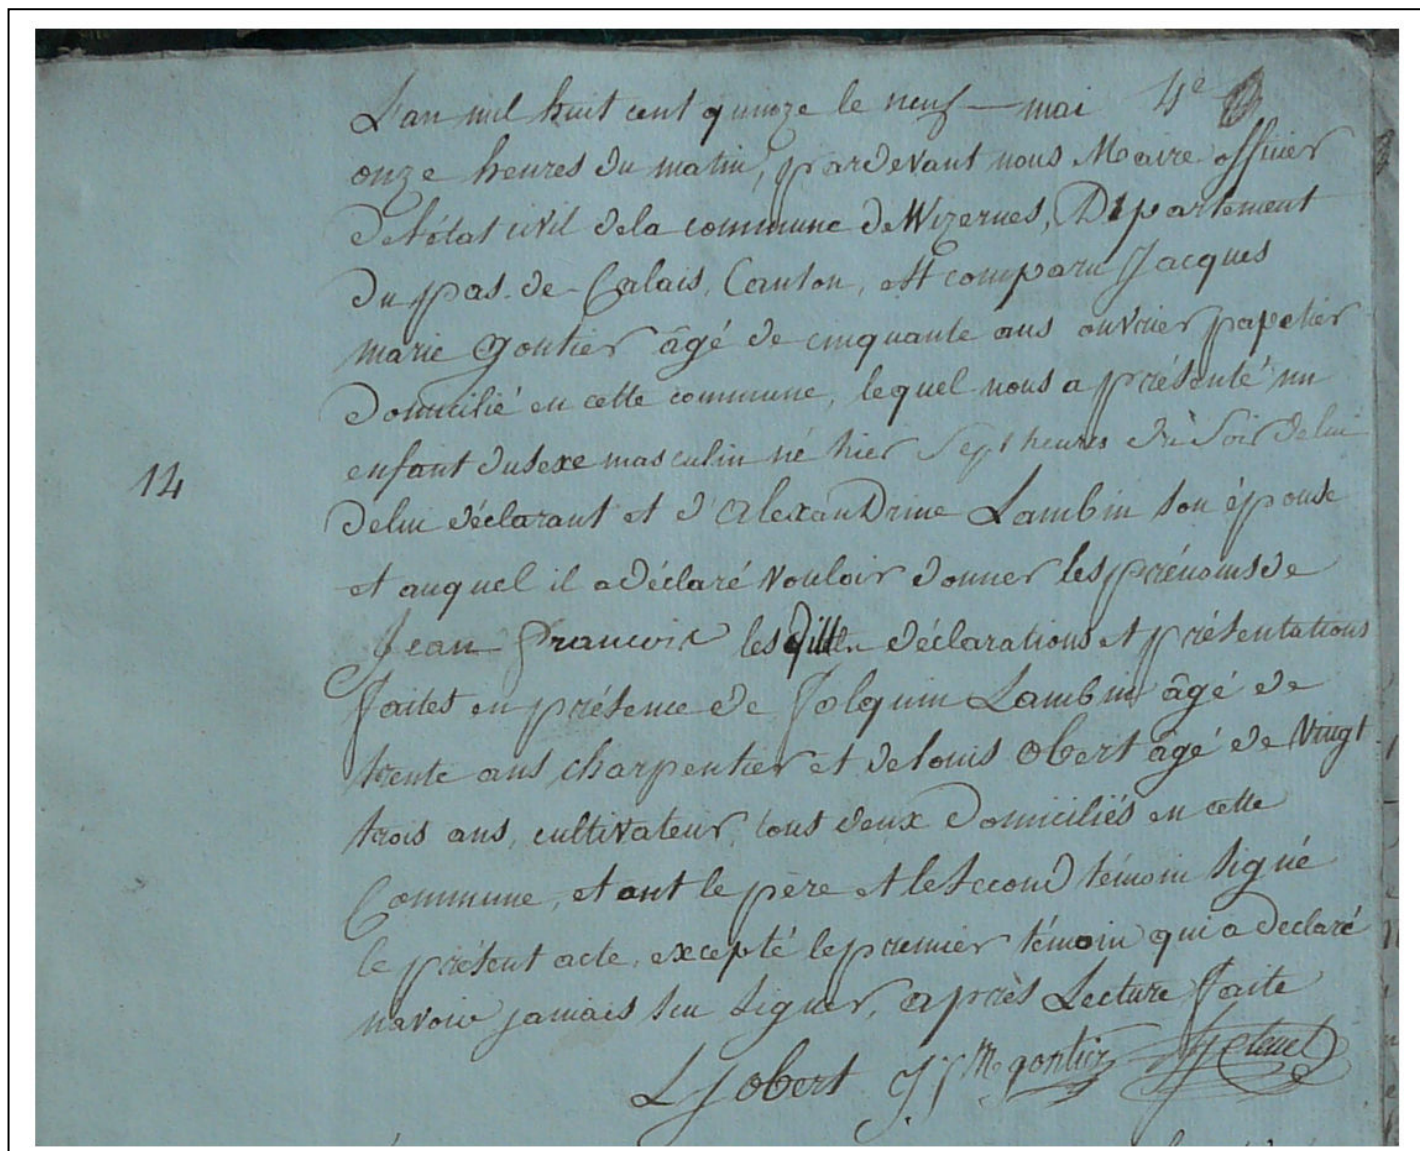 L'an mil huit cent quinze le neuf mai
onze heures du matin, pardevant nous Maire officier
de l'état civil de la commune de Wizernes, Département
du pas-de-Calais, Canton, est comparu Jacques
marie gontier âgé de cinquante ans ouvrier papetier
Domicilié en cette commune, lequel nous a présenté un
enfant du sexe masculin né hier Sept heures du Soir de lui
14
de lui déclarant et d'Alexandrine Lambin son épouse
et auquel il a déclaré vouloir donner les prénoms de
Jean François les déclarations et présentations
faites en présence de folquin Lambin âgé de
trente ans charpentier et de louis obert âgé de vingt
trois ans, cultivateur, tous deux Domiciliés en cette
Commune, et ont le père et le second témoin signé
le présent acte, excepté le premier témoin qui a declaré
navoir jamais seu signer, après Lecture faite
L J obert J M gontier